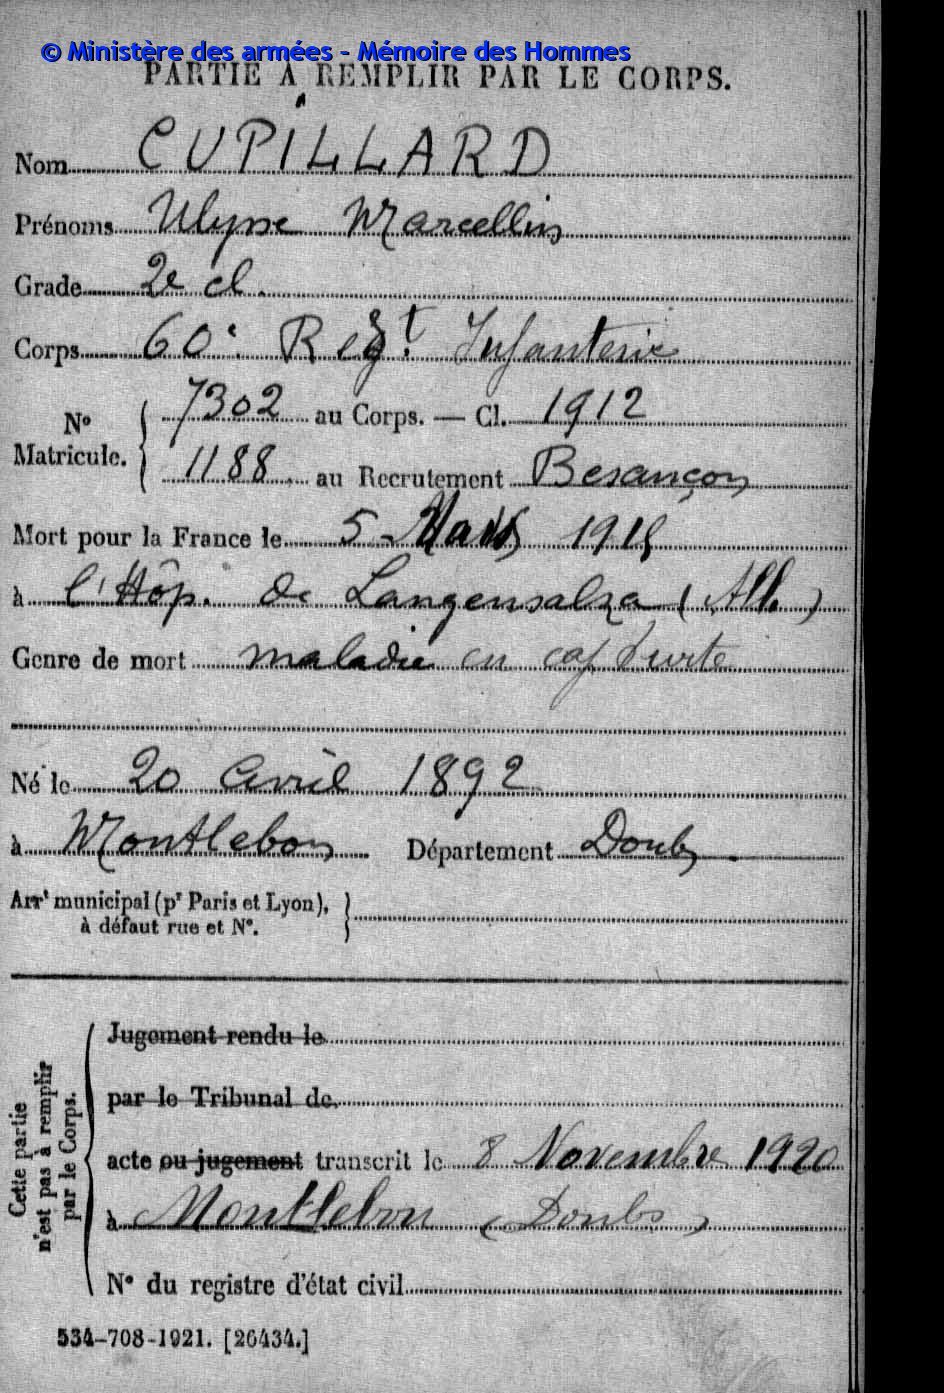 © Ministère des armées - Mémoire des Hommes
PARTIE À REMPLIR PAR LE CORPS.
Nom CUPILLARD
Prénoms Ulysse Marcellin
Grade 2e cl.
Corps 60e Regt. Infanterie
No Matricule. { 7302 au Corps. — Cl. 1912
1188 au Recrutement Besançon
Mort pour la France le 5 Mars 1915
à l'Hôp. de Langensalza (All.)
Genre de mort maladie en captivité
Né le 20 Avril 1892
à Montlebon Département Doubs.
Arrt municipal (pr Paris et Lyon), }
à défaut rue et No.
Cette partie n'est pas à remplir par le Corps. {
Jugement rendu le
par le Tribunal de
acte ou jugement transcrit le 8 Novembre 1920
à Montlebon (Doubs)
No du registre d'état civil
534-708-1921. [26434.]